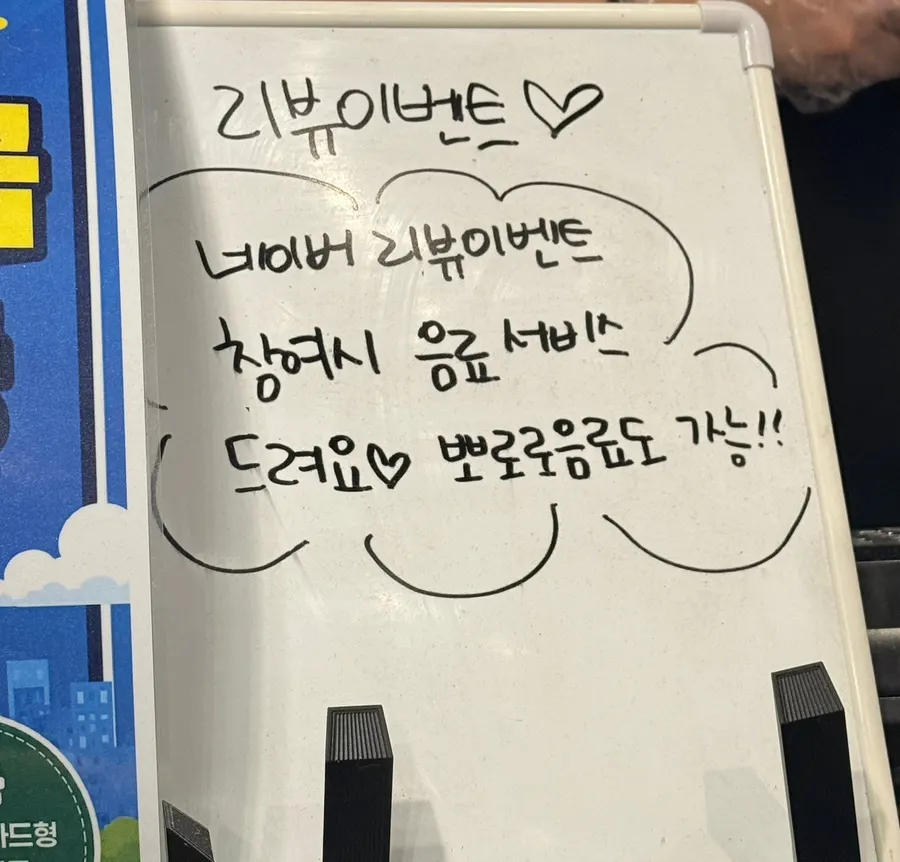 리뷰이벤트♡
네이버 리뷰이벤트
창여시 음료 서비스
드려요♡ 뽀로로음료도 가능!!
카드형